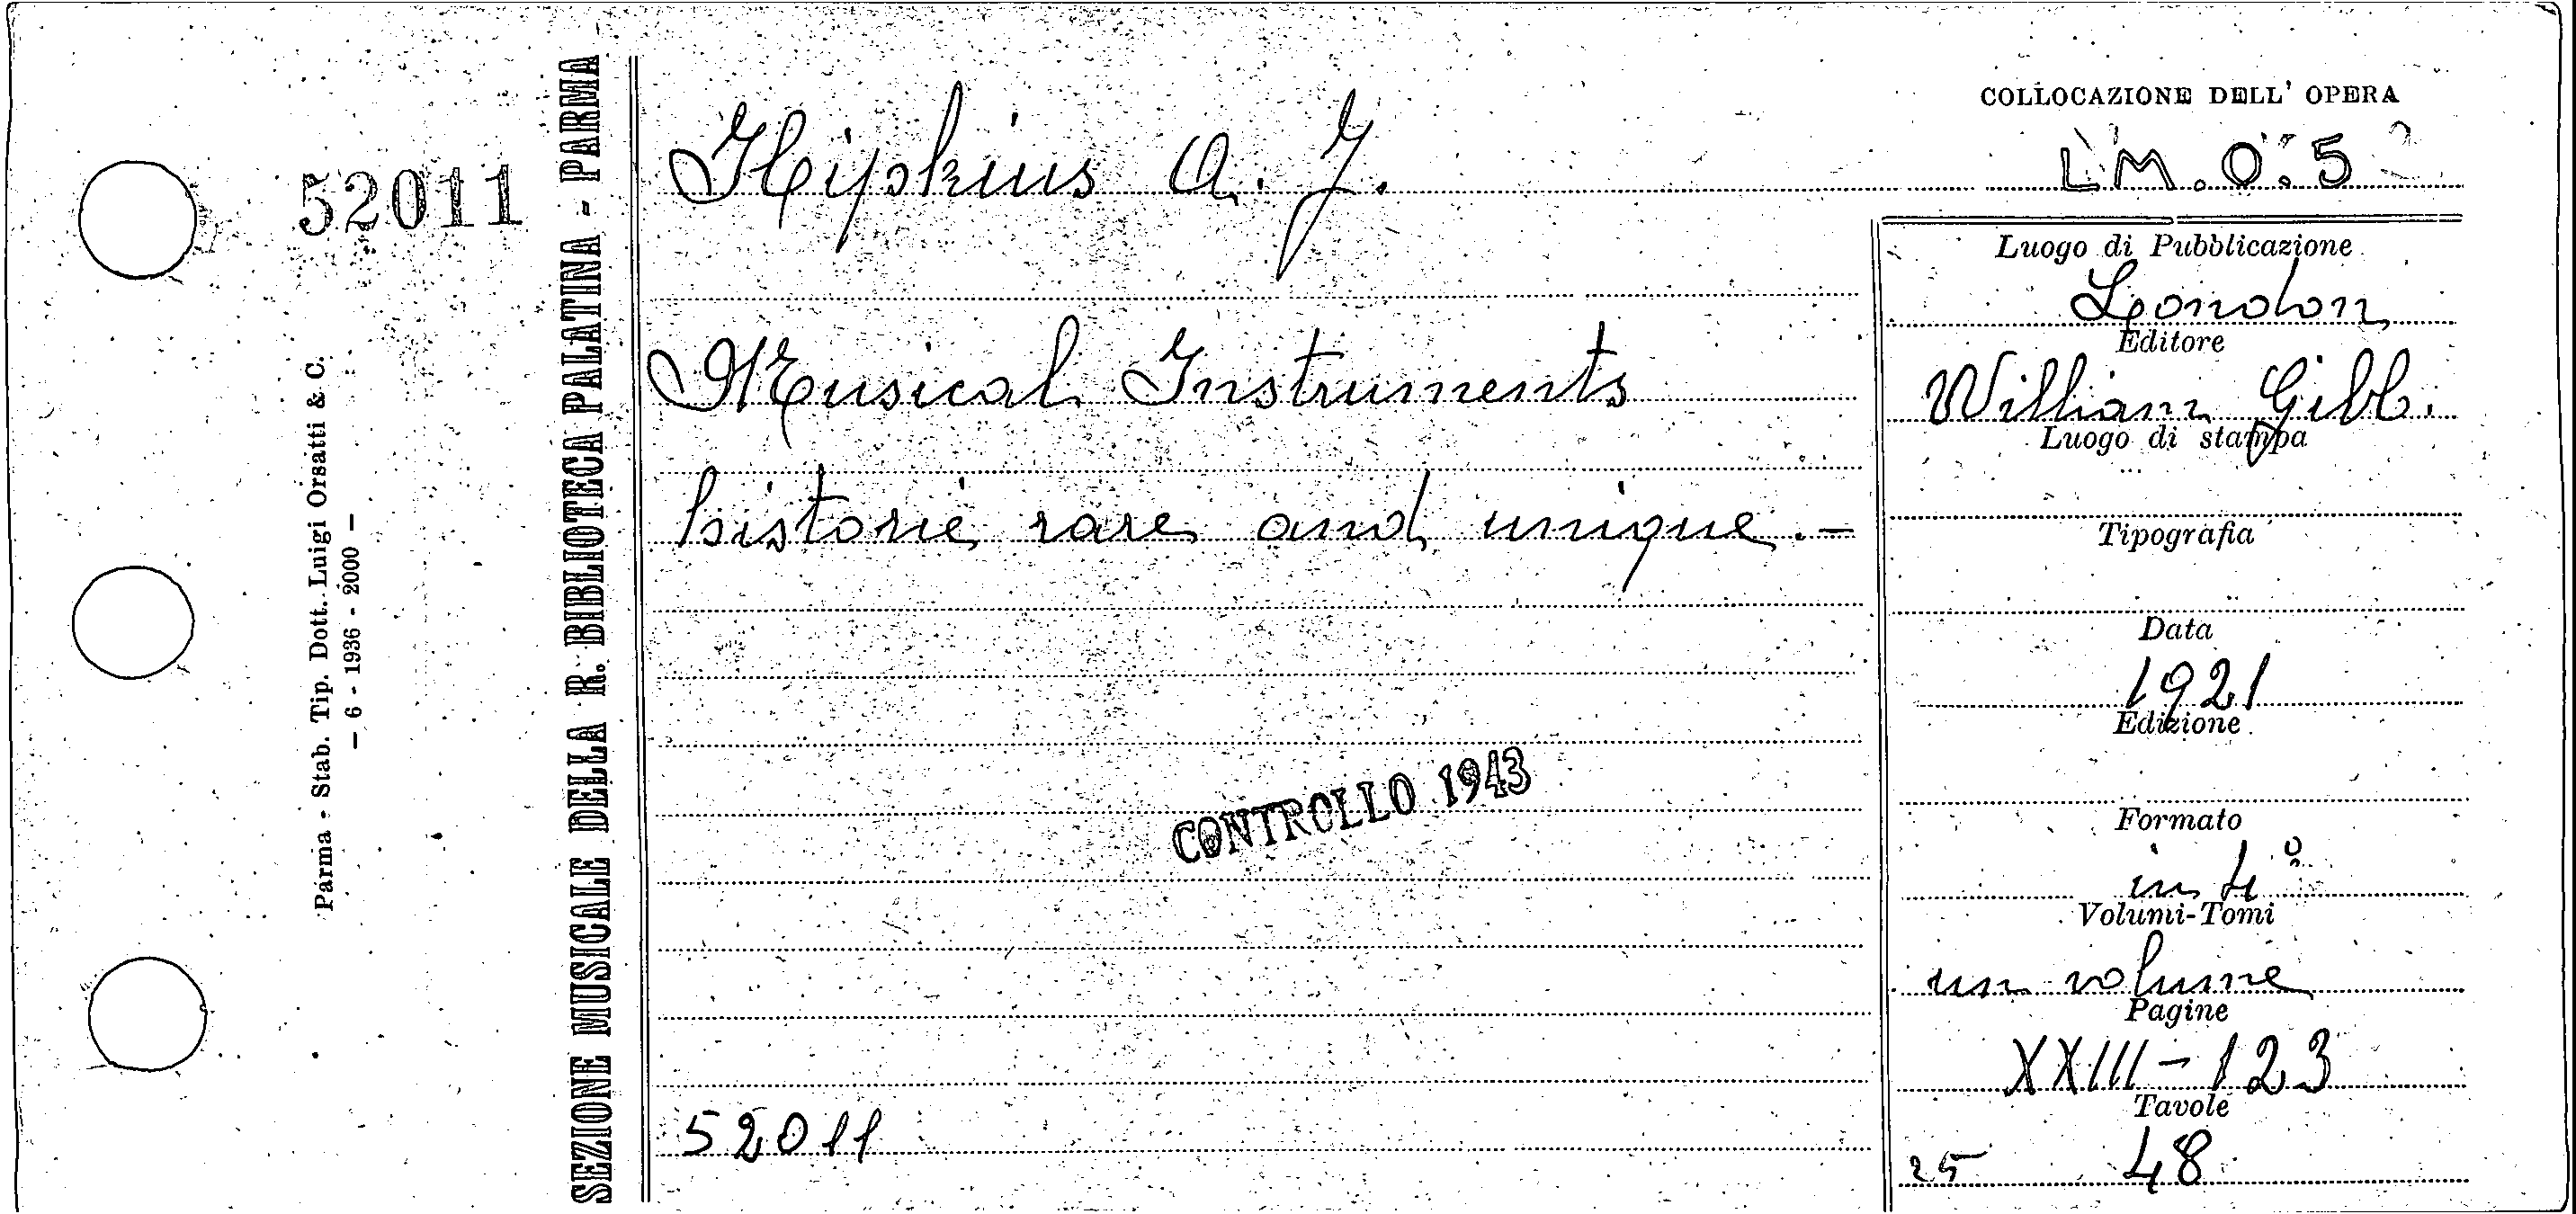 52011
Parma - Stab. Tip. Dott. Luigi Orsatti & C.
— 6 - 1936 - 2000 —
SEZIONE MUSICALE DELLA R. BIBLIOTECA PALATINA - PARMA
Hipkins A. J.
Musical Instruments
historic rare and unique.-
CONTROLLO 1943
52011
COLLOCAZIONE DELL' OPERA
LM.O.5
Luogo di Pubblicazione
London
Editore
William Gibb.
Luogo di stampa
Tipografia
Data
1921
Edizione
Formato
in 4°
Volumi-Tomi
un volume
Pagine
XXIII-123
Tavole
25 48